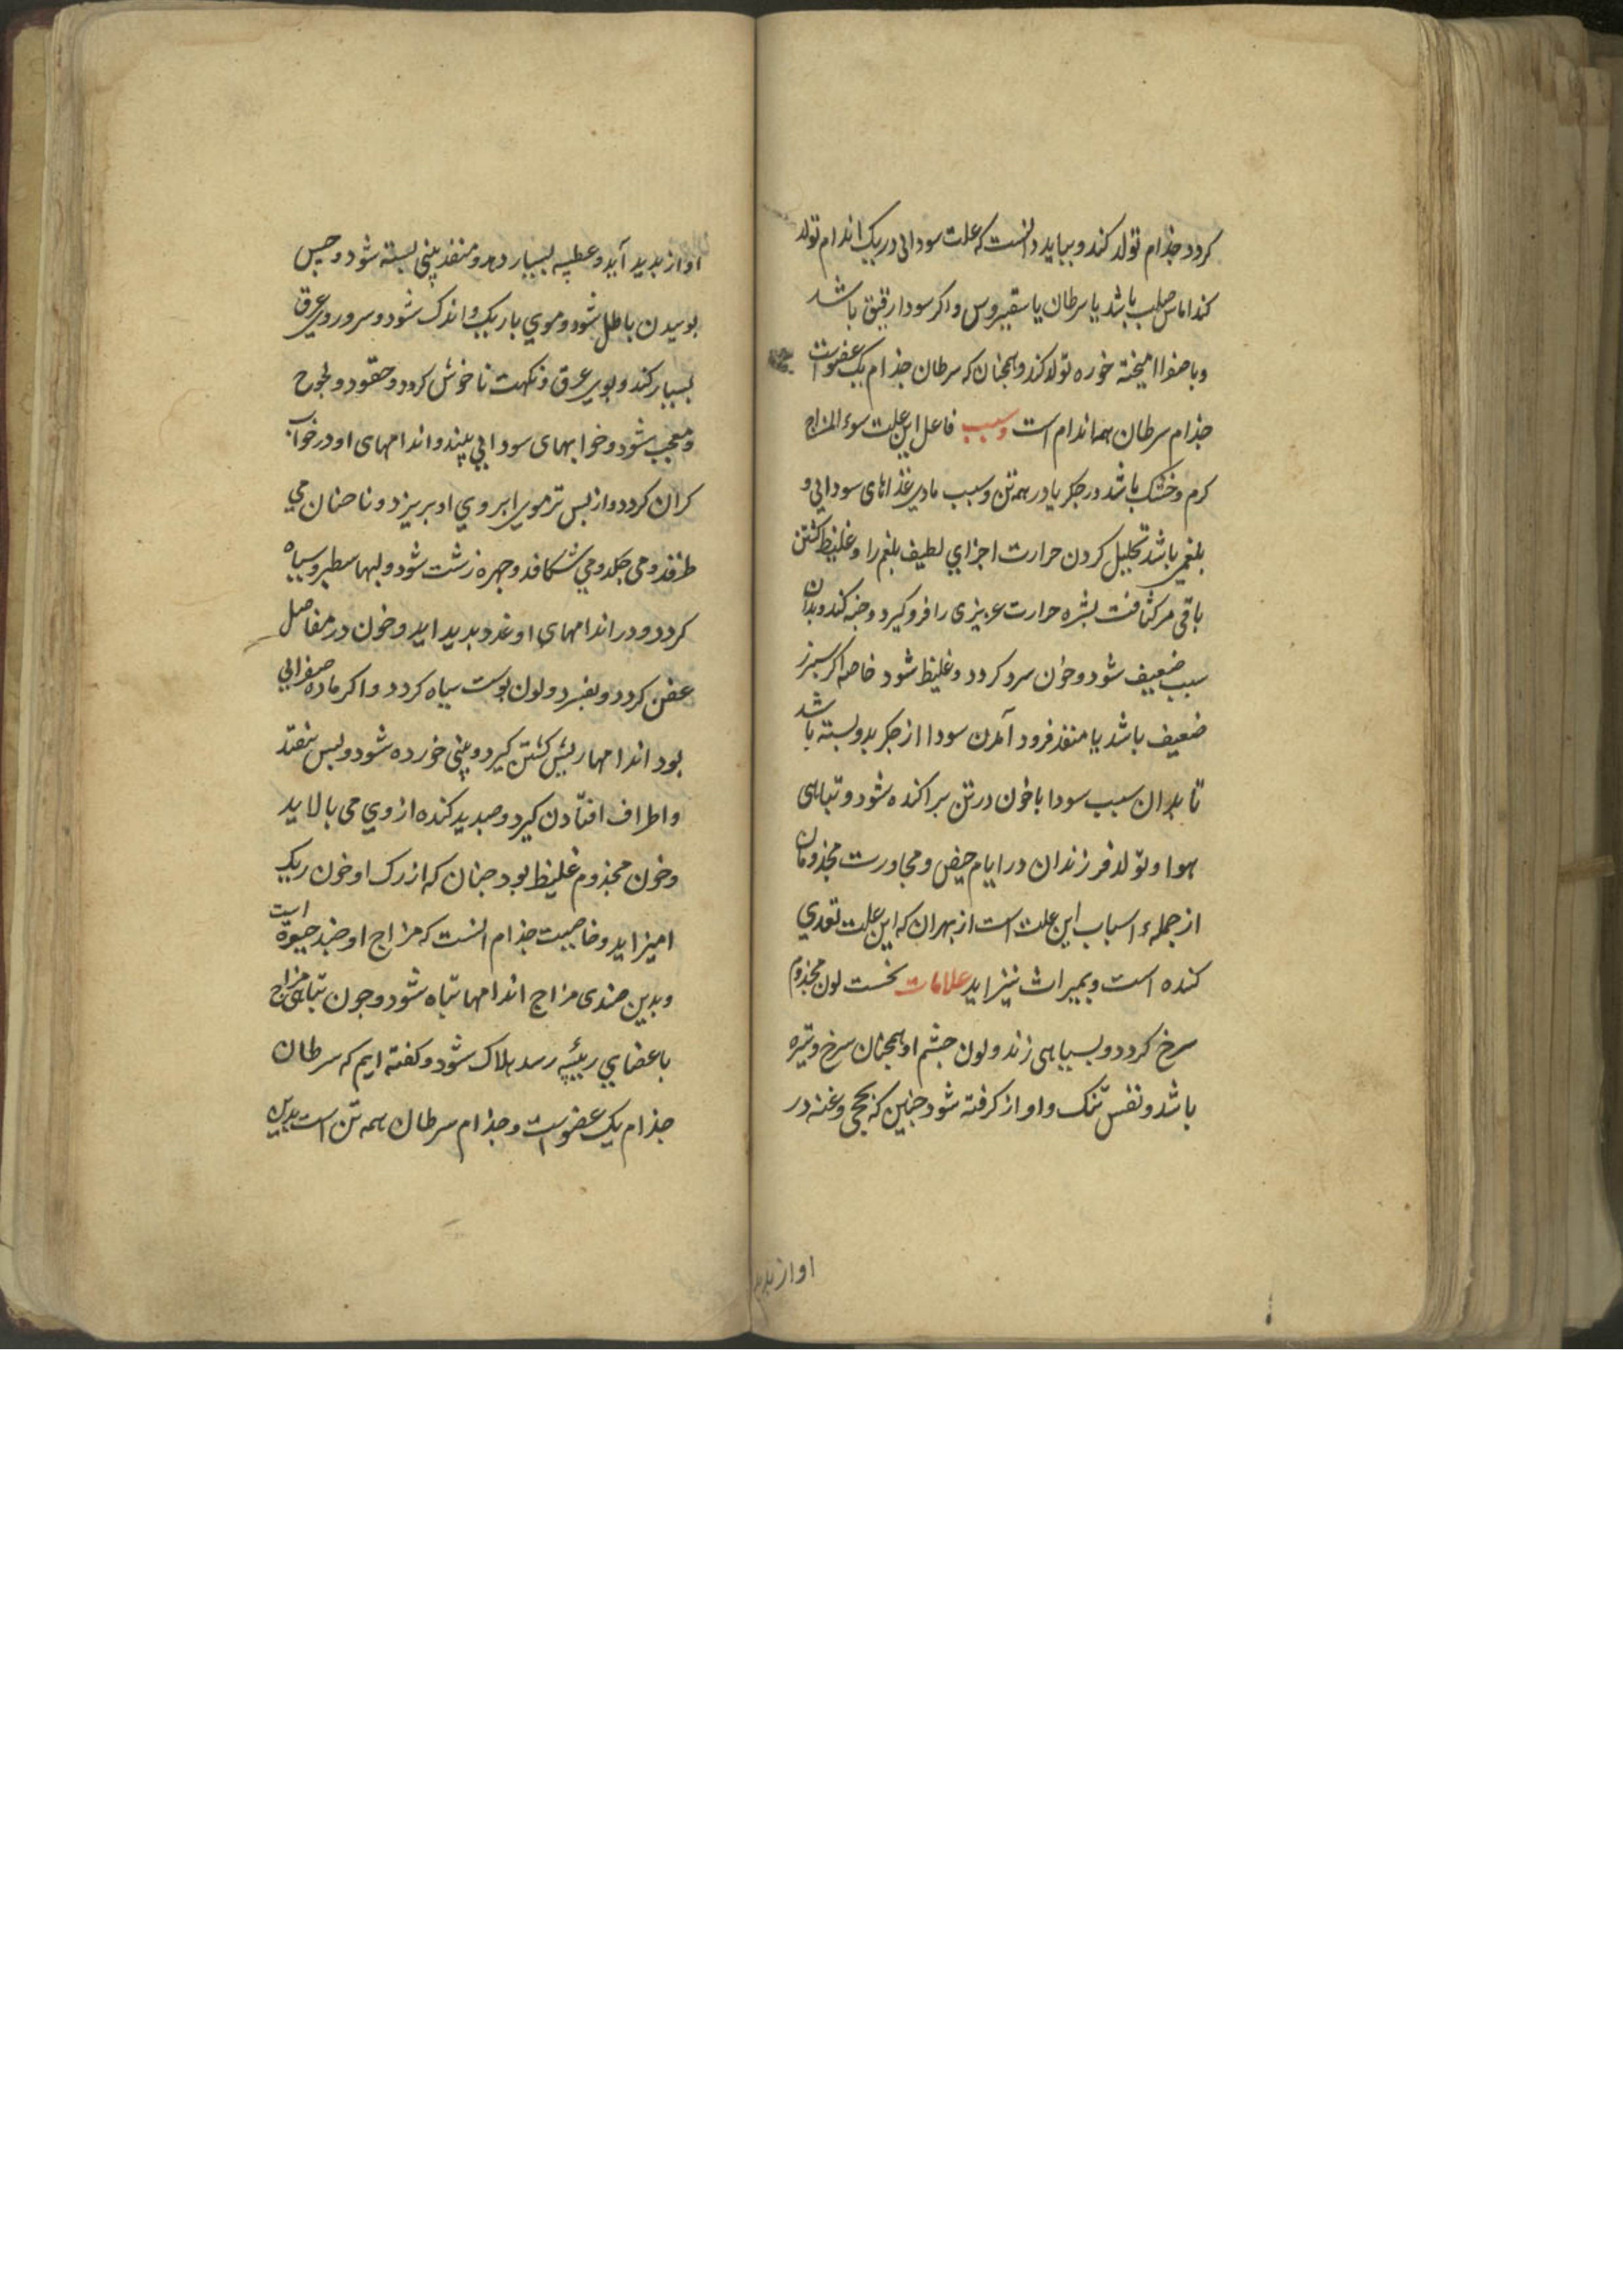 کردد جذام تولد کند و بباید دانست که علت سودائی در یک اندام تولد
کند اماس صلب باشد یا سرطان یا سقیروس و اکر سودا رقیق باشد
و با صفرا امیخته خوره تولد کند و همجنان که سرطان جذام یک عضوست
جذام سرطان همه اندام است و سبب فاعل این علت سوء المزاج
کرم و خشک باشد در جکر یا در همه تن و سبب مادی غذاهای سودایی و
بلغمی باشد تحلیل کردن حرارت اجزای لطیف بلغم را و غلیظ کشتن
باقی مر کثافت بشره حرارت عریزی را فرو کیرد و خبه کند و بدان
سبب ضعیف شود و خون سرد کردد و غلیظ شود خاصه اکر سبرز
ضعیف باشد یا منفذ فرود آمدن سودا از جکر بدو بسته باشد
تا بدان سبب سودا با خون در تن براکنده شود و تباهی
هوا و تولد فرزندان در ایام حیض و مجاورت مجذومان
از جمله اسباب این علت است از بهران که این علت تعدی
کنده است و بمیراث نیز اید علامات نخست لون مجذوم
سرخ کردد و بسیاهی زند و لون جشم او همجنان سرخ و تیره
باشد و نفس تنک و اواز کرفته شود جنین که بحی و غنه در
اواز بدید
اواز بدید آید و عطسه بسیار دهد و منفذ بینی بسته شود و حس
بوییدن باطل شود و موی باریک و اندک شود و سر و روی عرق
بسیار کند و بوی عرق و نکهت ناخوش کردد و حقود و لجوج
و معجب شود و خوابهای سودایی بیند و اندامهای او در خواب
کران کردد و از بس تر موی ابروی او بریزد و ناخنان می
طرفد و می جکد و می شکافد و جهره زشت شود و لبها سطبر و سیاه
کردد و در اندامهای او غدد بدید اید و خون در مفاصل
عفن کردد و بفسرد و لون بوست سیاه کردد و اکر ماده صفرایی
بود اندامها ریش کشتن کیرد و بینی خورده شود و بس بیفتد
و اطراف افتادن کیرد و صدید کنده از وی می بالاید
و خون مجذوم غلیظ بود جنان که از رک او خون ریک
امیز اید و خاصیت جذام انست که مزاج او ضد حیوة است
و بدین ضدی مزاج اندامها تباه شود و جون تباهی مزاج
باعضای رئیسه رسد هلاک شود و کفته ایم که سرطان
جذام یک عضوست و جذام سرطان همه تن است بدین